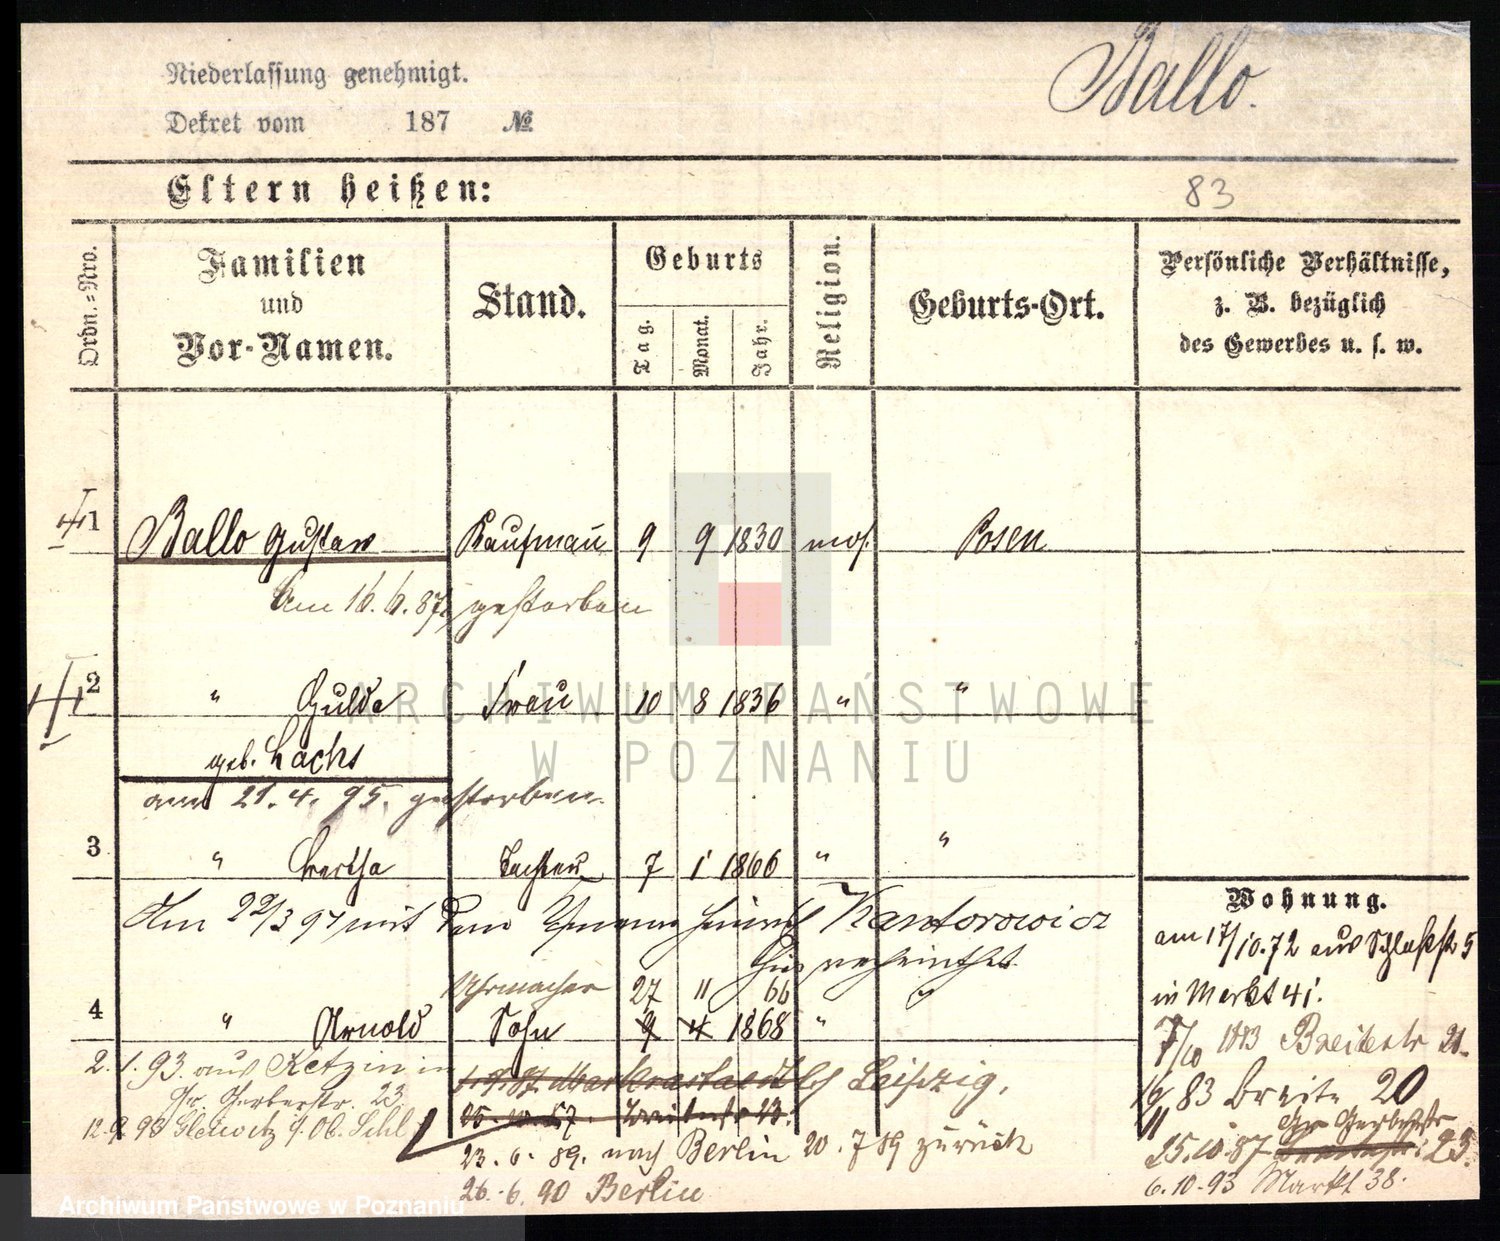 Niederlassung genehmigt.
Ballo.
Dekret vom 187 №
Eltern heißen:
83
Ordn.=Nro.
Familien
und
Vor-Namen.
Stand.
Geburts
Tag.
Monat.
Jahr.
Religion.
Geburts-Ort.
Persönliche Verhältnisse,
z. B. bezüglich
des Gewerbes u. s. w.
1 Ballo Gustav Kaufmann 9 9 1830 mos. Posen
Am 16. 6. 87. gestorben
2 " Hulda Frau 10 8 1836 " "
geb. Lachs
am 21. 4. 95. gestorben.
3 " Bertha Tochter 7 1 1866 " "
Am 22/3 97 mit dem Kantorowicz
hier verheirathet
Uhrmacher 27 11 66
4 " Arnold Sohn 9 4 1868 "
2. 1. 93. aus Ketzin in
Gr. Gerberstr. 23.
12.9.93 Gleiwitz i. Ob. Schl
Leipzig,
25. 10. 87. Breitestr 23.
23. 6. 89. nach Berlin 20. 7 89 zurück
26. 6. 90 Berlin
Wohnung.
am 17/10.72 aus Schloßstr 5
in Markt 41.
7/10 1883 Breitestr 21.
16/11 83 Breite 20
Gr Gerberstr
25.10.87 23.
6.10.93 Markt 38.
ARCHIWUM PAŃSTWOWE
W POZNANIU
Archiwum Państwowe w Poznaniu